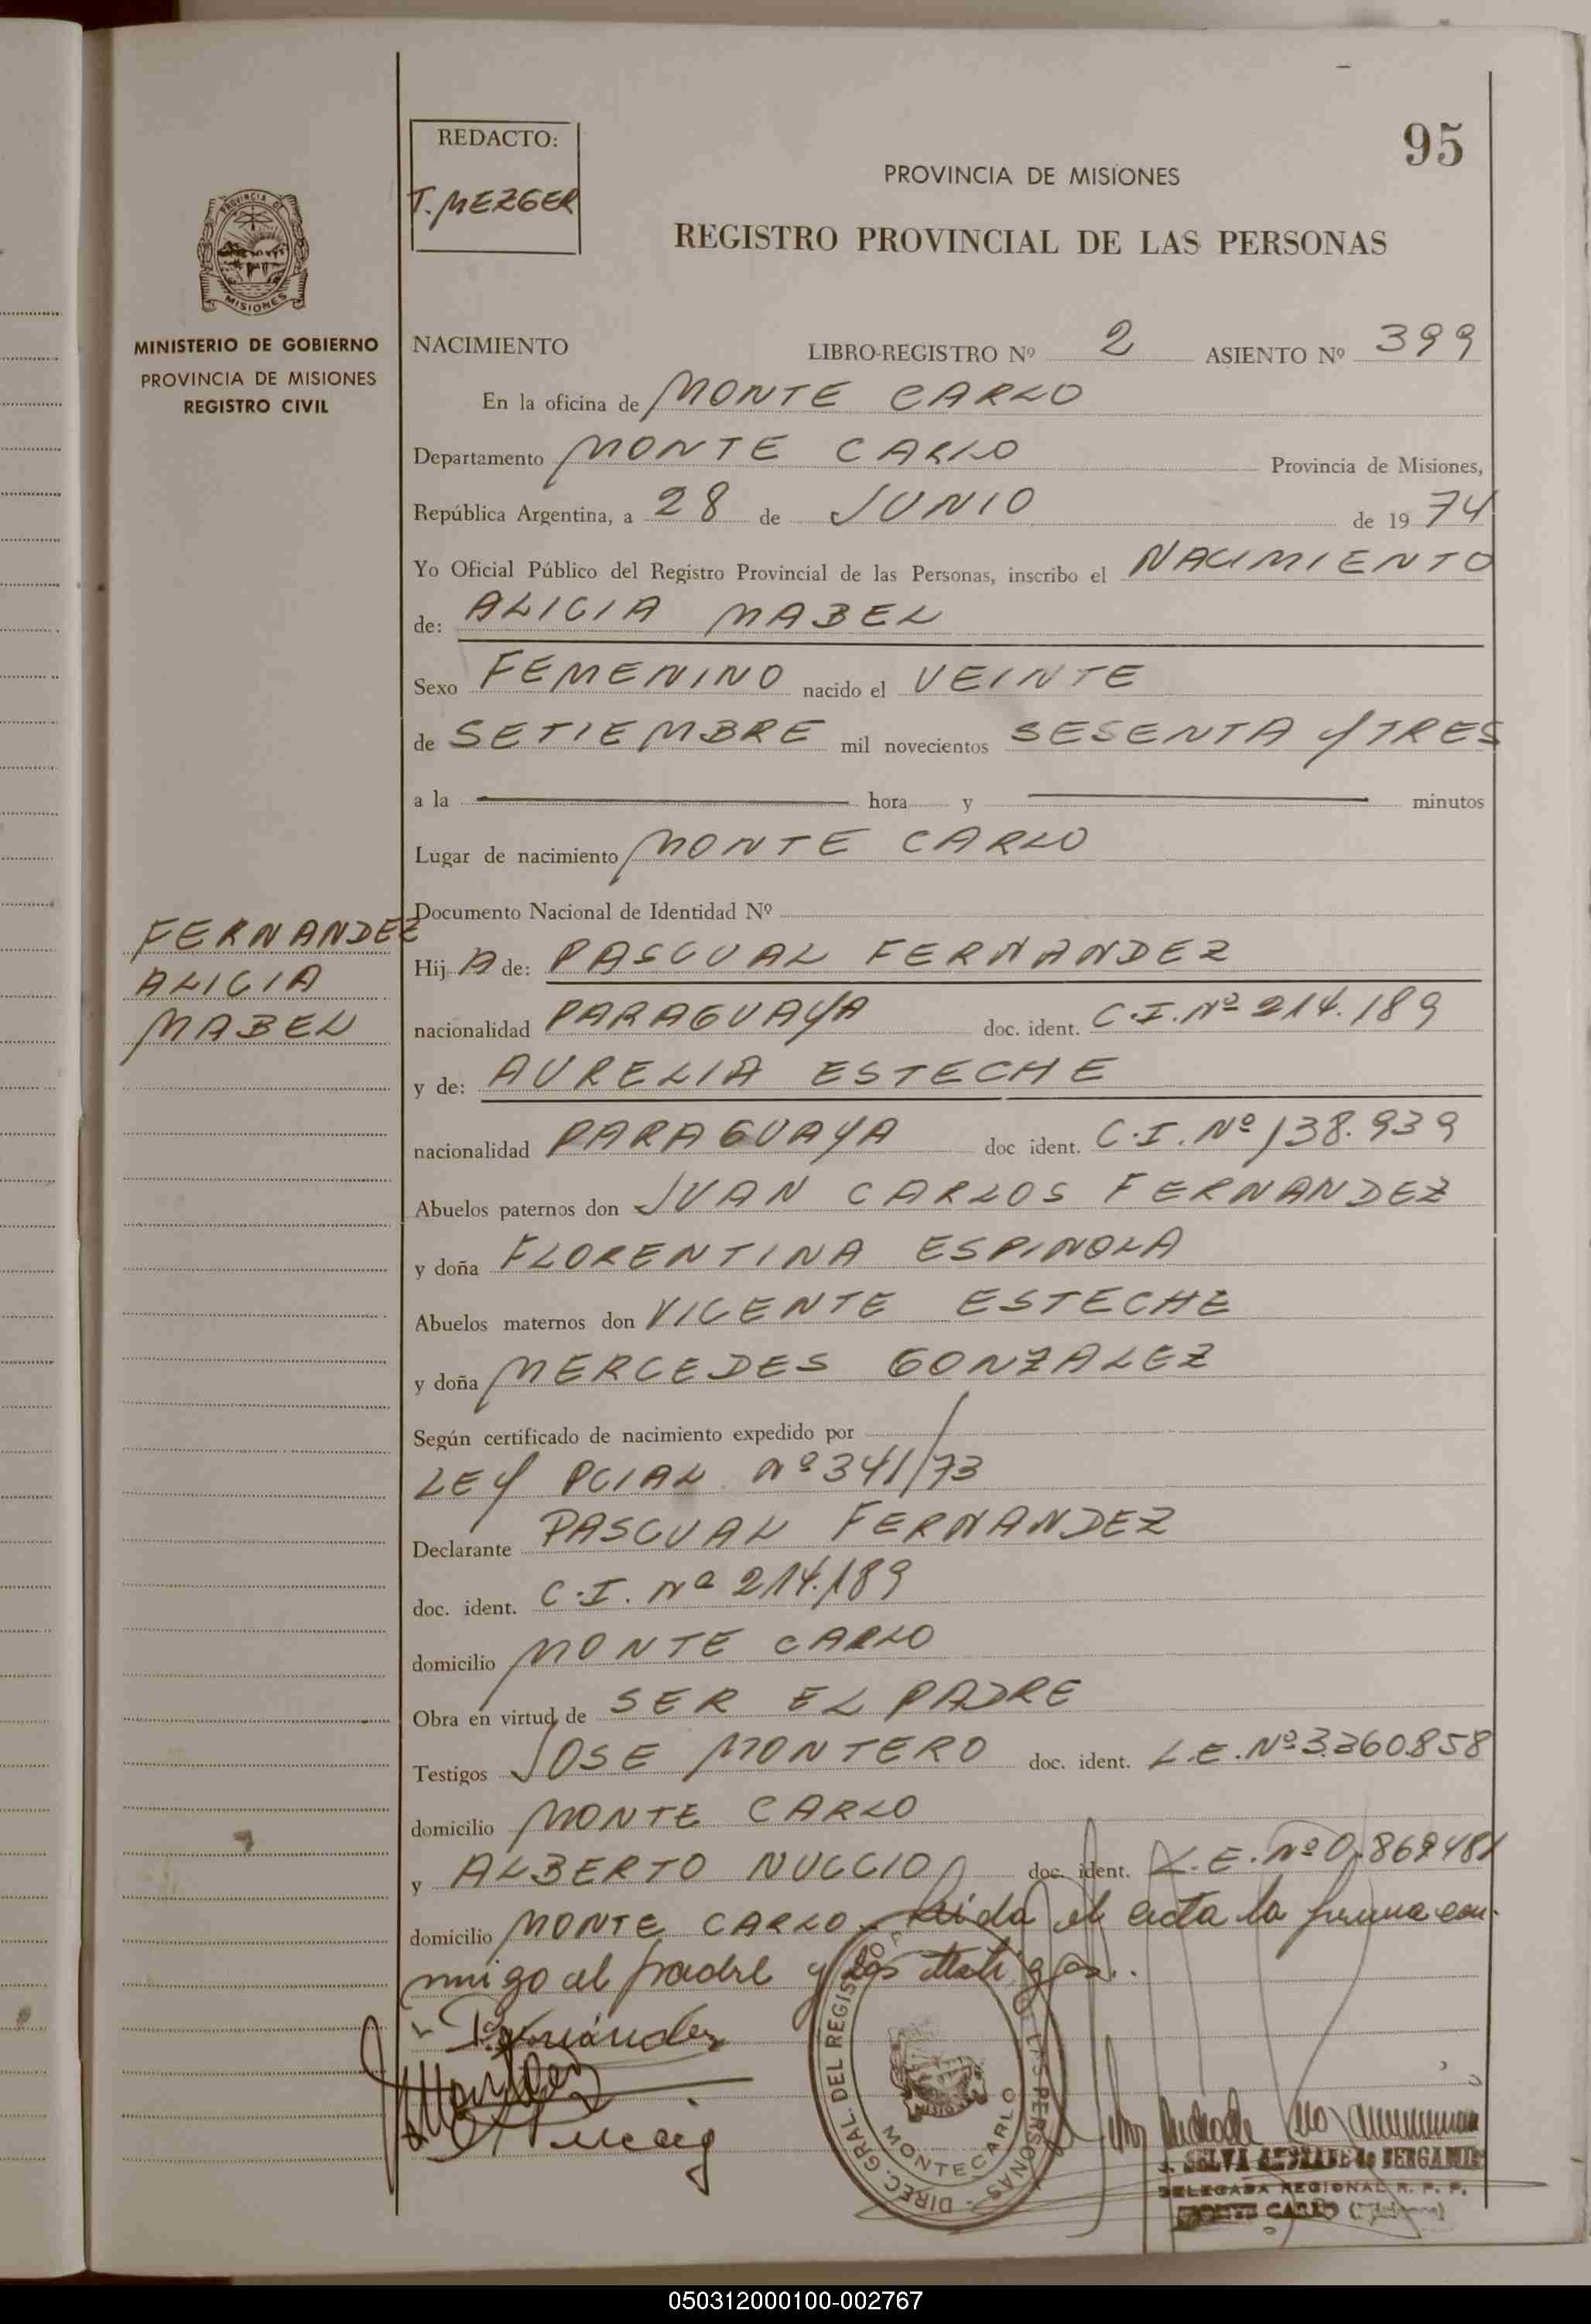 95
REDACTO:
T. MEZGER
PROVINCIA DE MISIONES
REGISTRO PROVINCIAL DE LAS PERSONAS
PROVINCIA DE
MISIONES
MINISTERIO DE GOBIERNO
PROVINCIA DE MISIONES
REGISTRO CIVIL
NACIMIENTO LIBRO-REGISTRO Nº 2 ASIENTO Nº 399
En la oficina de MONTE CARLO
Departamento MONTE CARLO Provincia de Misiones,
República Argentina, a 28 de JUNIO de 19 74
Yo Oficial Público del Registro Provincial de las Personas, inscribo el NACIMIENTO
de: ALICIA MABEL
Sexo FEMENINO nacido el VEINTE
de SETIEMBRE mil novecientos SESENTA Y TRES
a la hora y minutos
Lugar de nacimiento MONTE CARLO
Documento Nacional de Identidad Nº
FERNANDEZ
ALICIA
MABEL
Hij A de: PASCUAL FERNANDEZ
nacionalidad PARAGUAYA doc. ident. C.I. Nº 214.189
y de: AURELIA ESTECHE
nacionalidad PARAGUAYA doc ident. C.I. Nº 138.939
Abuelos paternos don JUAN CARLOS FERNANDEZ
y doña FLORENTINA ESPINOLA
Abuelos maternos don VICENTE ESTECHE
y doña MERCEDES GONZALEZ
Según certificado de nacimiento expedido por
LEY PCIAL Nº 341/73
Declarante PASCUAL FERNANDEZ
doc. ident. C.I. Nº 214.189
domicilio MONTE CARLO
Obra en virtud de SER EL PADRE
Testigos JOSE MONTERO doc. ident. L.E. Nº 3.360.858
domicilio MONTE CARLO
y ALBERTO NUCCIO doc. ident. L.E. Nº 0.869481
domicilio MONTE CARLO. Leida el acta la firma con-
migo el padre y los testigos.
P. Fernández
DIREC. GRAL. DEL REGISTRO P. DE LAS PERSONAS
MONTECARLO
SELVA de BERGAMIN
DELEGADA REGIONAL R. P. P.
MONTE CARLO
050312000100-002767